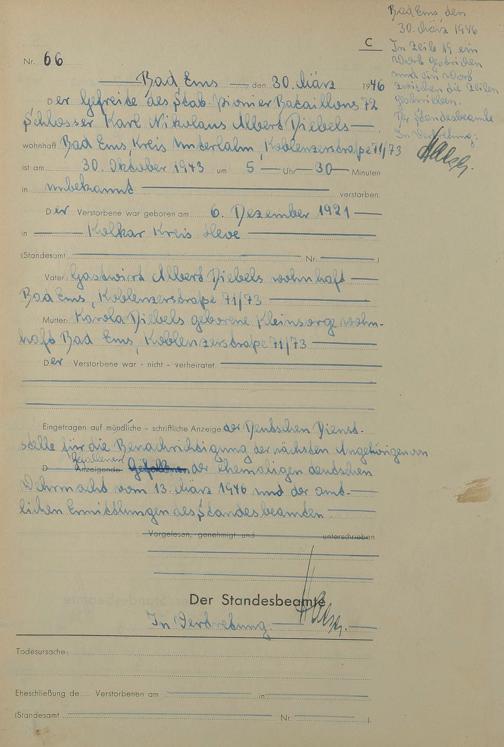 Bad Ems den
30. März 1946
In Zeile 19 ein
Wort gestrichen
und ein Wort
zwischen die Zeilen
geschrieben.
Der Standesbeamte
In Vertretung:
C
Nr. 66
Bad Ems den 30. März 1946
Der Gefreite des Stab. Pionier Bataillons 72
Schlosser Karl Nikolaus Albert Diebels
wohnhaft Bad Ems, Kreis Unterlahn, Koblenzerstraße 71/73
ist am 30. Oktober 1943 um 5 Uhr 30 Minuten
in unbekannt verstorben.
Der Verstorbene war geboren am 6. Dezember 1921
in Kalkar Kreis Kleve
(Standesamt Nr. )
Vater: Gastwirt Albert Diebels wohnhaft
Bad Ems, Koblenzerstraße 71/73
Mutter: Karola Diebels geborene Kleinsorge wohn-
haft Bad Ems, Koblenzerstraße 71/73
Der Verstorbene war - nicht - verheiratet
Eingetragen auf mündliche - schriftliche Anzeige der Deutschen Dienst-
stelle für die Benachrichtigung der nächsten Angehörigen von
Gefallenen
D Anzeigende Gefallenen der ehemaligen deutschen
Wehrmacht vom 13. März 1946 und der amt-
lichen Ermittlungen des Standesbeamten.
Vorgelesen, genehmigt und unterschrieben
Der Standesbeamte
In Vertretung
Todesursache:
Eheschließung de Verstorbenen am in
(Standesamt Nr. ).